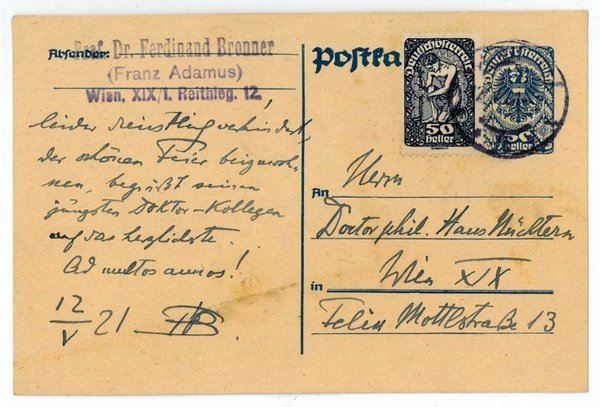 Absender: Prof. Dr. Ferdinand Bronner
(Franz Adamus)
Wien, XIX/1. Reithleg. 12.
leider dienstlich verhindert,
der schönen Feier beizuwoh-
nen, begrüßt seinen
jüngsten Doktor-Kollegen
auf das herzlichste.
Ad multos annos!
12/V 21 FB
Postka
Deutschösterreich
50
Heller
Deutschösterreich
50
Heller
An
Herrn
Doctor phil. Hans Nüchtern
in
Wien XIX
Felix Mottlstraße 13